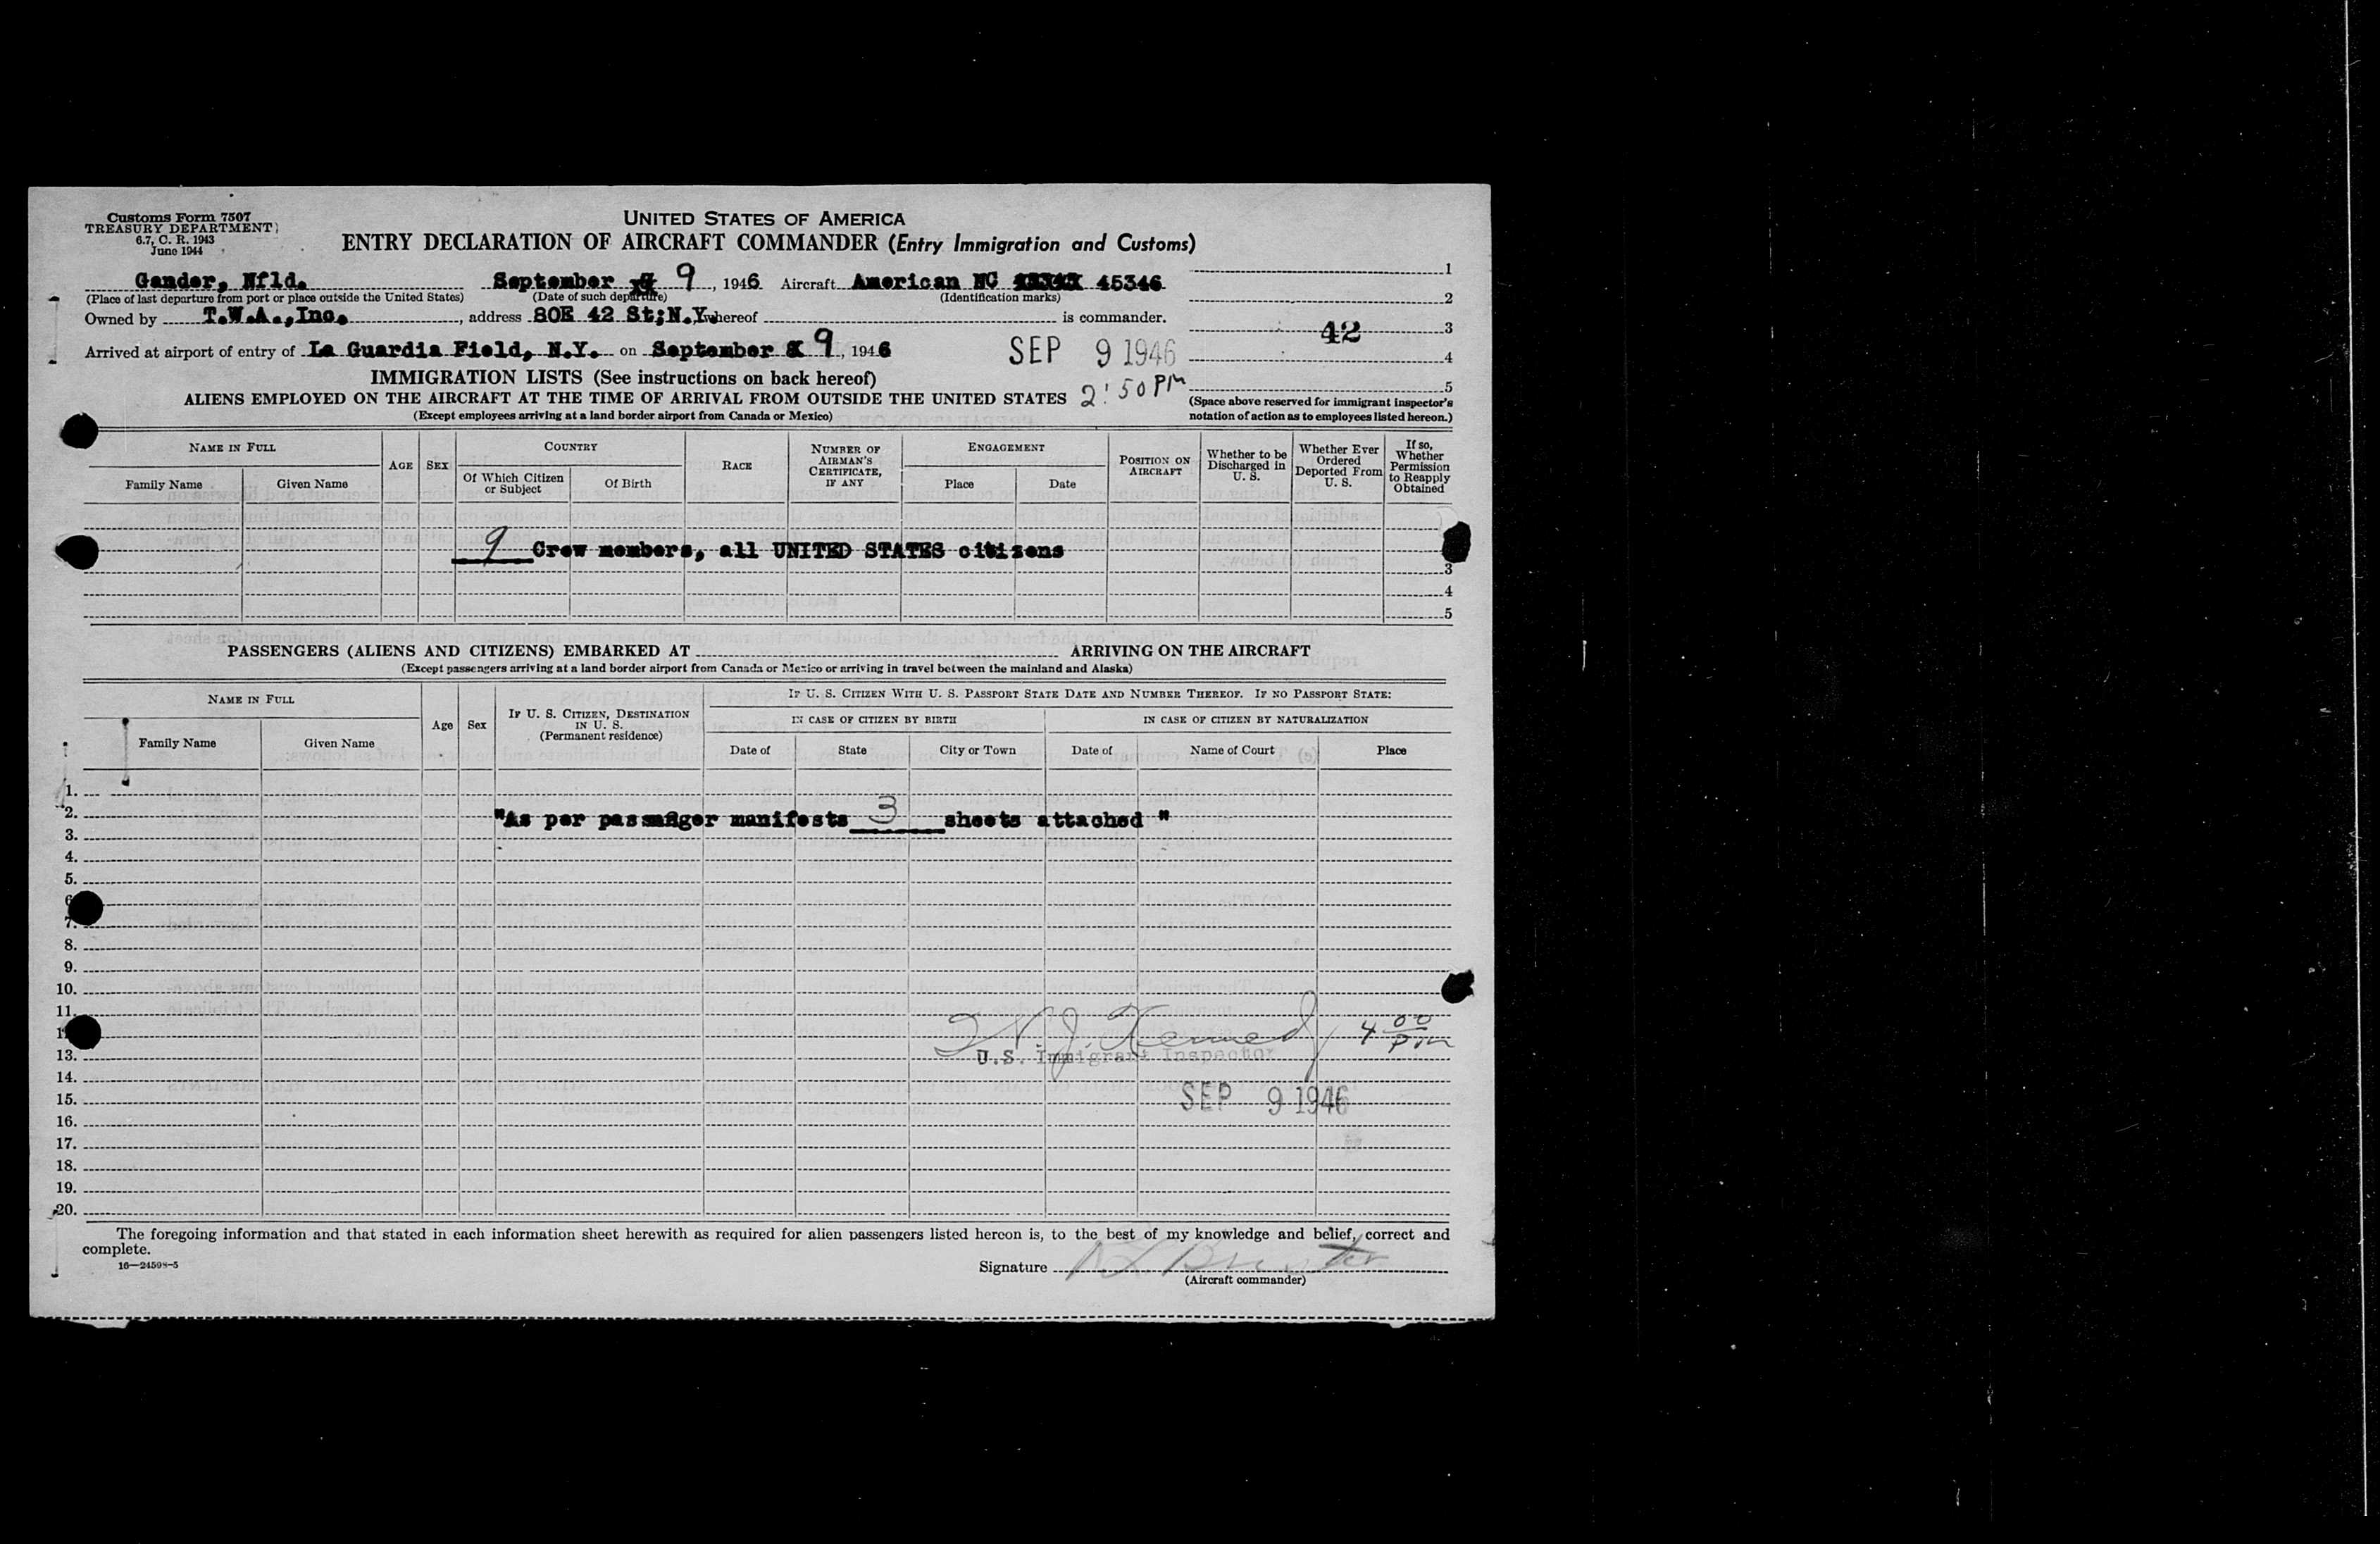 Customs Form 7507
TREASURY DEPARTMENT
6.7, C. R. 1943
June 1944
UNITED STATES OF AMERICA
ENTRY DECLARATION OF AIRCRAFT COMMANDER (Entry Immigration and Customs)
Gander, Nfld. September 9, 1946 Aircraft American NC 45346 1
(Place of last departure from port or place outside the United States) (Date of such departure) (Identification marks) 2
Owned by T.W.A.,Inc., address 80E 42 St;N.Y. whereof is commander.
42 3
Arrived at airport of entry of La Guardia Field, N.Y. on September 9, 1946 SEP 9 1946 4
IMMIGRATION LISTS (See instructions on back hereof) 2:50 PM 5
ALIENS EMPLOYED ON THE AIRCRAFT AT THE TIME OF ARRIVAL FROM OUTSIDE THE UNITED STATES
(Except employees arriving at a land border airport from Canada or Mexico)
(Space above reserved for immigrant inspector's
notation of action as to employees listed hereon.)
NAME IN FULL AGE SEX COUNTRY RACE NUMBER OF AIRMAN'S CERTIFICATE, IF ANY ENGAGEMENT POSITION ON AIRCRAFT Whether to be Discharged in U. S. Whether Ever Ordered Deported From U. S. If so, Whether Permission to Reapply Obtained
Family Name Given Name Of Which Citizen or Subject Of Birth Place Date
9 Crew members, all UNITED STATES citizens
3
4
5
PASSENGERS (ALIENS AND CITIZENS) EMBARKED AT ARRIVING ON THE AIRCRAFT
(Except passengers arriving at a land border airport from Canada or Mexico or arriving in travel between the mainland and Alaska)
NAME IN FULL Age Sex IF U. S. CITIZEN, DESTINATION IN U. S. (Permanent residence) IF U. S. CITIZEN WITH U. S. PASSPORT STATE DATE AND NUMBER THEREOF. IF NO PASSPORT STATE:
IN CASE OF CITIZEN BY BIRTH IN CASE OF CITIZEN BY NATURALIZATION
Family Name Given Name Date of State City or Town Date of Name of Court Place
1.
2. "As per passenger manifests 3 sheets attached "
3.
4.
5.
6
7.
8.
9.
10.
11.
1 W. J. Kennedy 4 00 pm
13. U.S. Immigrant Inspector
14.
15. SEP 9 1946
16.
17.
18.
19.
20.
The foregoing information and that stated in each information sheet herewith as required for alien passengers listed hereon is, to the best of my knowledge and belief, correct and
complete.
16—24598-5
Signature
(Aircraft commander)